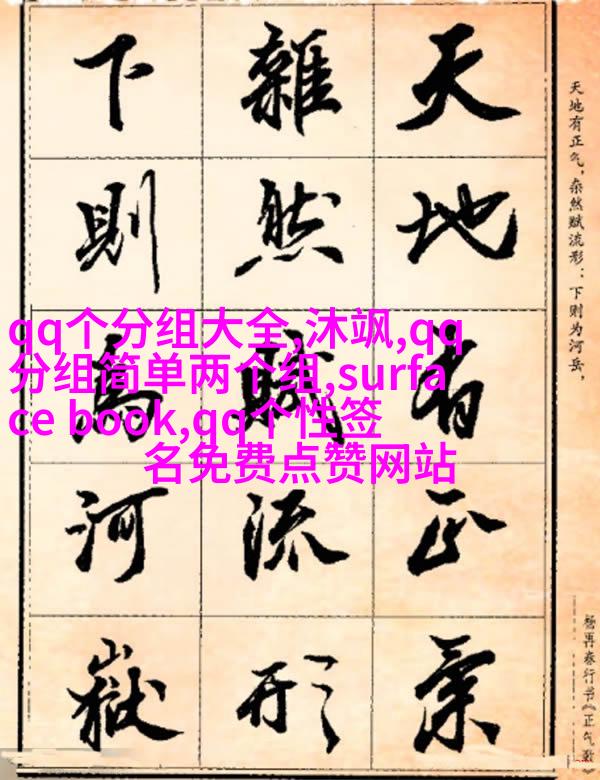 天地有正氣
雜然賦流形
下則為河嶽
天地有正气，杂然赋流形：下则为河岳，
杨再春行书《正气歌》
qq个分组大全,沐飒,qq
分组简单两个组,surfa
ce book,qq个性签
名免费点赞网站